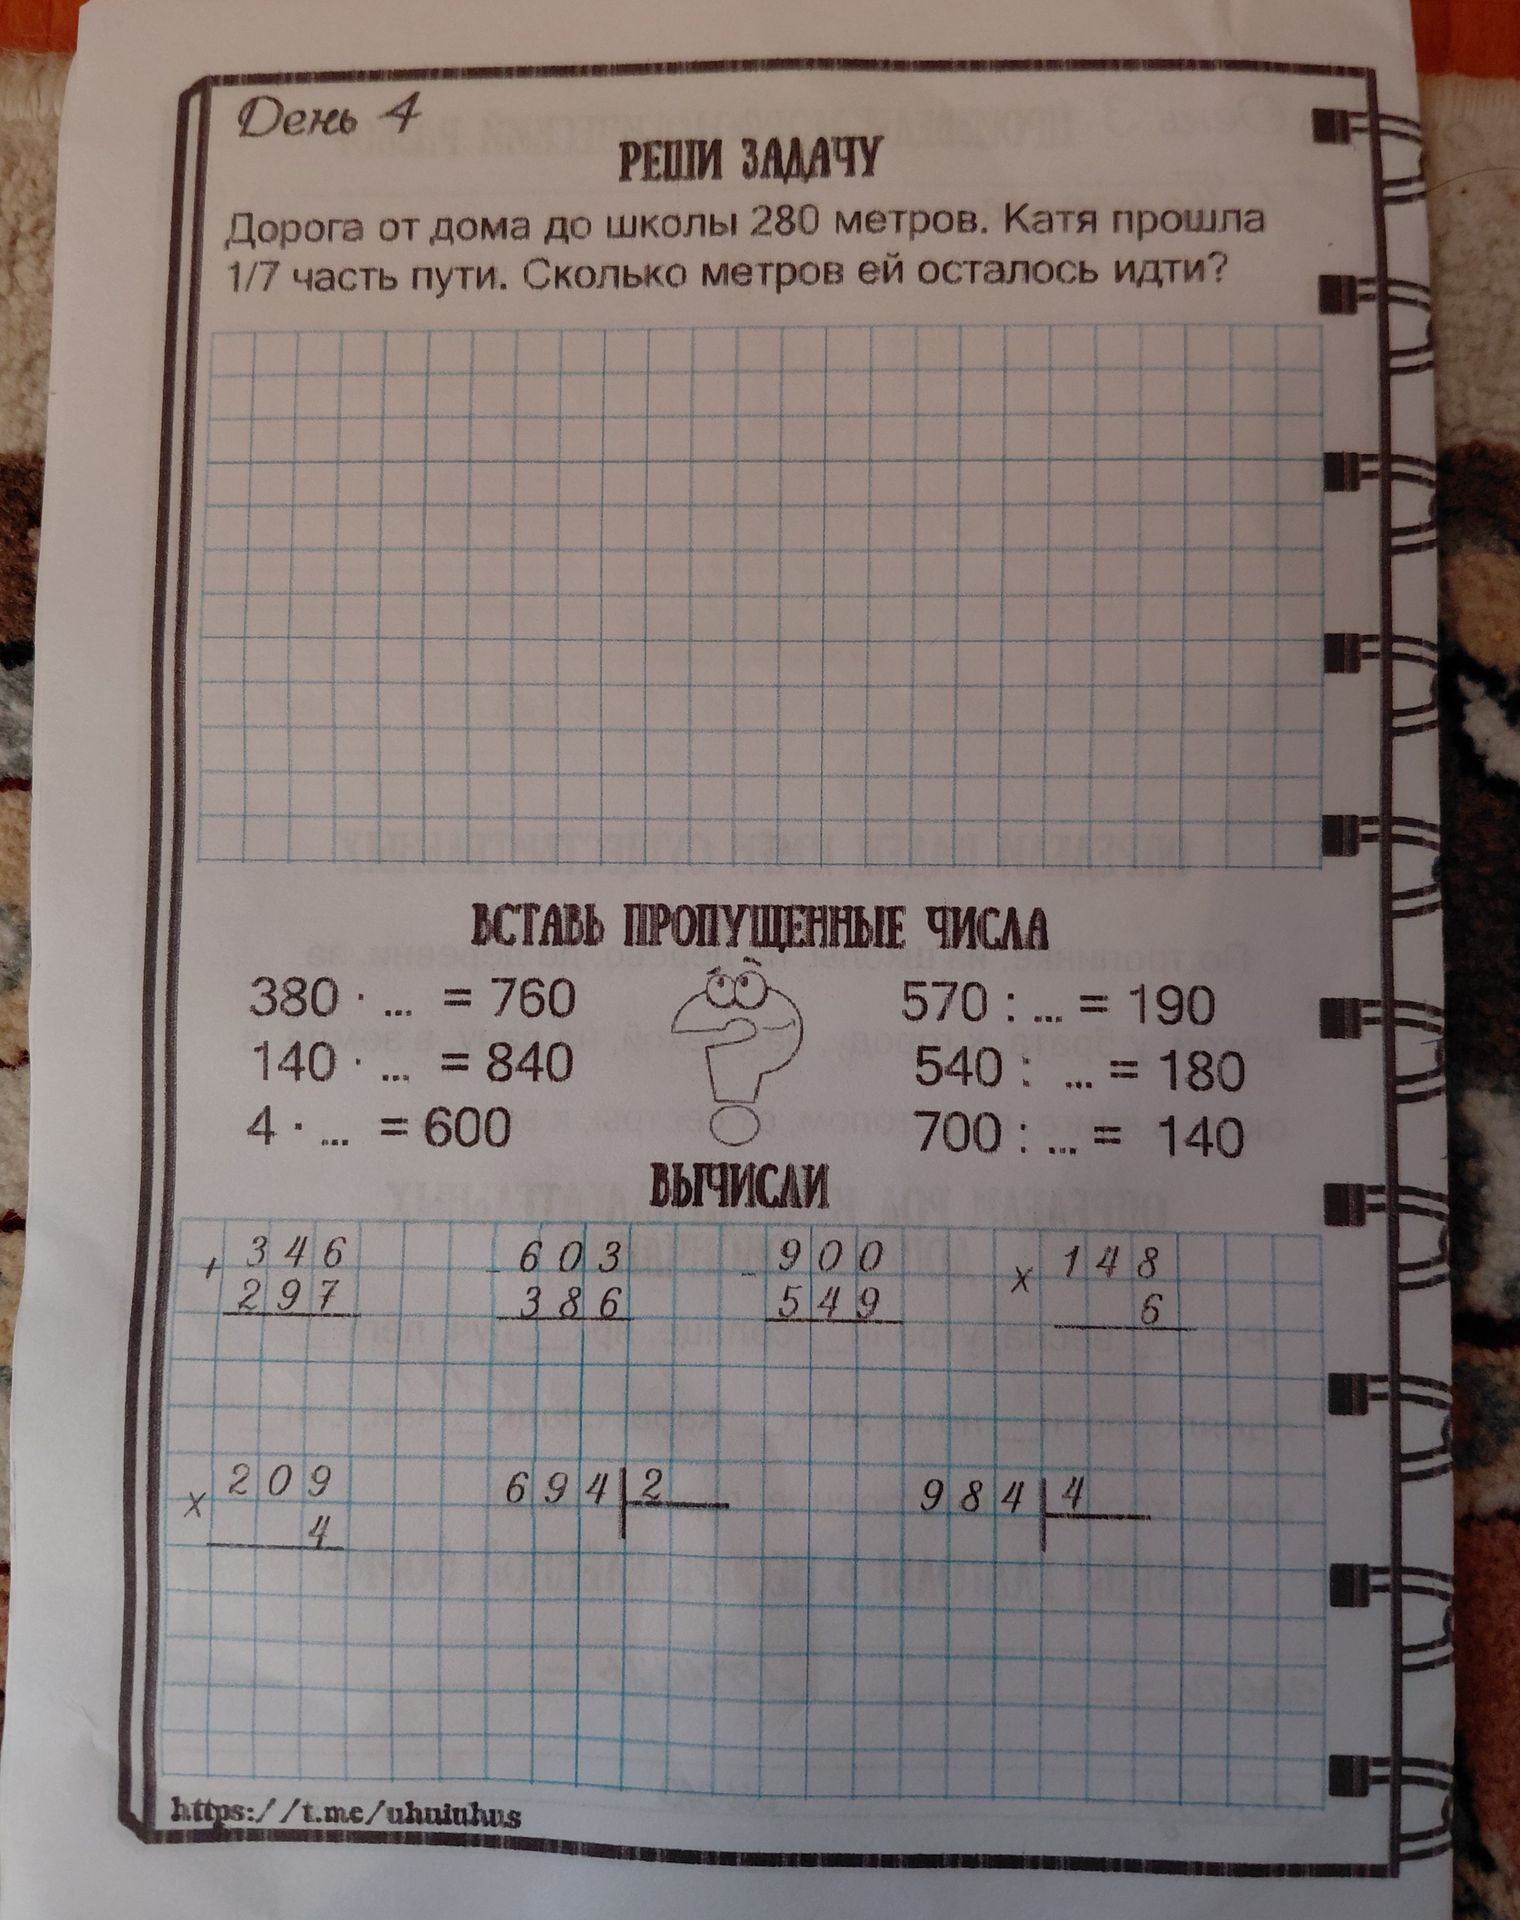 День 4
РЕШИ ЗАДАЧУ
Дорога от дома до школы 280 метров. Катя прошла
1/7 часть пути. Сколько метров ей осталось идти?
ВСТАВЬ ПРОПУЩЕННЫЕ ЧИСЛА
380 · ... = 760 570 : ... = 190
140 · ... = 840 540 : ... = 180
4 · ... = 600 700 : ... = 140
ВЫЧИСЛИ
+ 346 - 603 - 900 x 148
297 386 549 6
x 209 694 2 984 4
4
https://t.me/uhuiuhus